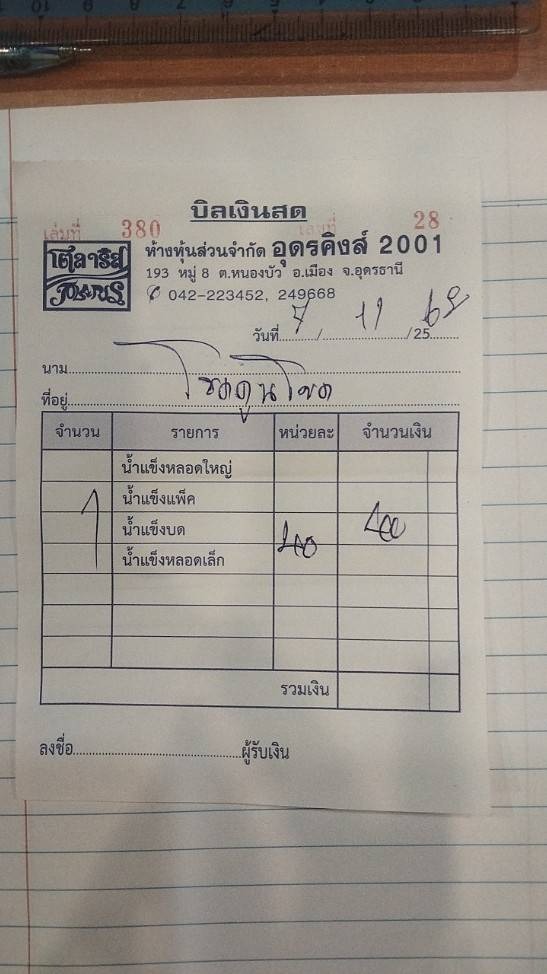 บิลเงินสด
เล่มที่ 380 เลขที่ 28
โตลาริส
ห้างหุ้นส่วนจำกัด อุดรคิงส์ 2001
193 หมู่ 8 ต.หนองบัว อ.เมือง จ.อุดรธานี
042-223452, 249668
วันที่ 7 / 11 / 25 68
นาม
ที่อยู่
จำนวน รายการ หน่วยละ จำนวนเงิน
น้ำแข็งหลอดใหญ่
น้ำแข็งแพ็ค
1 น้ำแข็งบด 40
น้ำแข็งหลอดเล็ก
รวมเงิน
ลงชื่อ ผู้รับเงิน